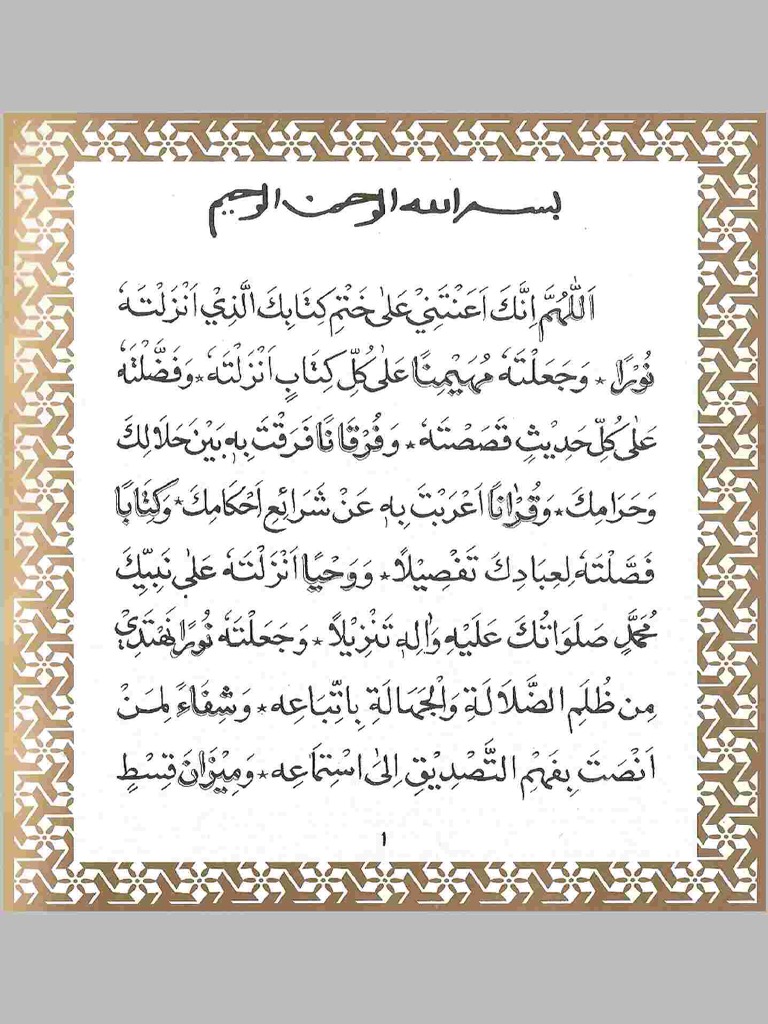 بسم الله الرحمن الرحيم
اَللّٰهُمَّ اِنَّكَ اَعَنْتَنِيْ عَلٰى خَتْمِ كِتَابِكَ الَّذِيْ اَنْزَلْتَهٗ
نُوْرًا * وَجَعَلْتَهٗ مُهَيْمِنًا عَلٰى كُلِّ كِتَابٍ اَنْزَلْتَهٗ * وَفَضَّلْتَهٗ
عَلٰى كُلِّ حَدِيْثٍ قَصَصْتَهٗ * وَفُرْقَانًا فَرَقْتَ بِهٖ بَيْنَ حَلَالِكَ
وَحَرَامِكَ * وَقُرْاٰنًا اَعْرَبْتَ بِهٖ عَنْ شَرَائِعِ اَحْكَامِكَ * وَكِتَابًا
فَصَّلْتَهٗ لِعِبَادِكَ تَفْصِيْلًا * وَوَحْيًا اَنْزَلْتَهٗ عَلٰى نَبِيِّكَ
مُحَمَّدٍ صَلَوَاتُكَ عَلَيْهِ وَاٰلِهٖ تَنْزِيْلًا * وَجَعَلْتَهٗ نُوْرًا نَهْتَدِيْ
مِنْ ظُلَمِ الضَّلَالَةِ وَالْجَهَالَةِ بِاتِّبَاعِهٖ * وَشِفَاءً لِمَنْ
اَنْصَتَ بِفَهْمِ التَّصْدِيْقِ اِلٰى اسْتِمَاعِهٖ * وَمِيْزَانَ قِسْطٍ
١